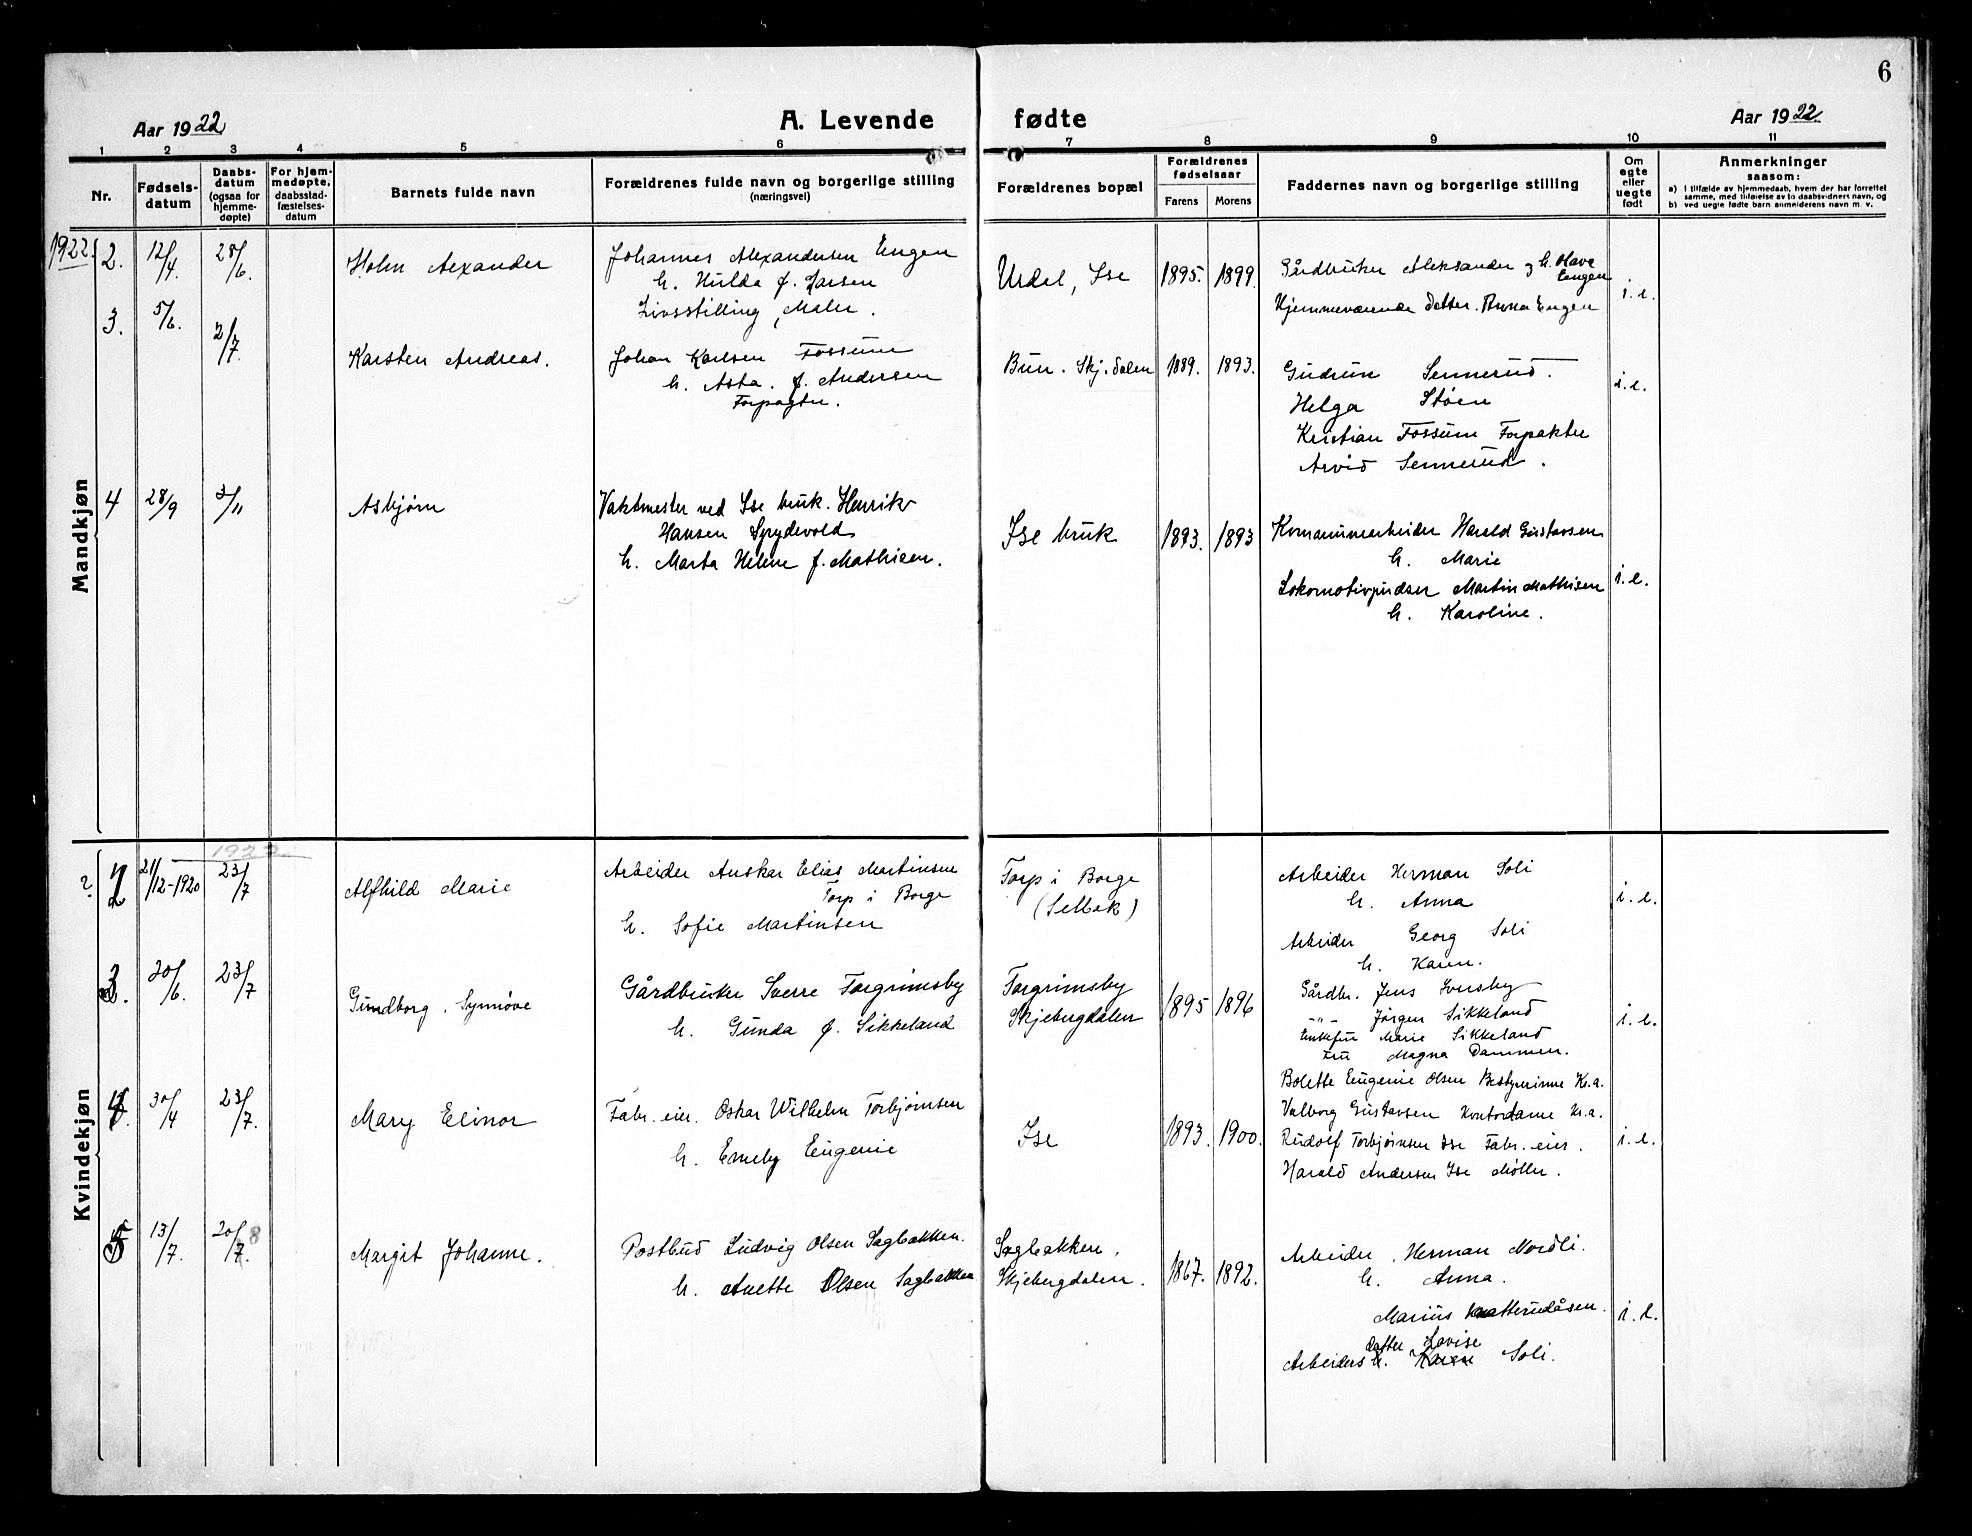 6
Aar 1922
A. Levende fødte
Aar 1922.
1 2 3 4 5 6 7 8 9 10 11
Nr.
Fødsels-
datum
Daabs-
datum
(ogsaa for
hjemme-
døpte)
For hjem-
medøpte,
daabsstad-
fæstelses-
datum
Barnets fulde navn
Forældrenes fulde navn og borgerlige stilling
(næringsvei)
Forældrenes bopæl
Forældrenes
fødselsaar
Farens Morens
Faddernes navn og borgerlige stilling
Om
egte
eller
uegte
født
Anmerkninger
saasom:
a) i tilfælde av hjemmedaab, hvem der har forrettet
samme, med tilføielse av to daabsvidners navn, og
b) ved uegte fødte barn anmelderens navn m. v.
Mandkjøn
1922.
2. 12/4. 25/6. Holm Alexander
Johannes Alexandersen Engen
h. Hulda f. Larsen
Livsstilling, Maler.
Urdal, Ise 1895. 1899.
Gårdbruker Aleksander og h. Olava
Engen
Hjemmeværende Datter. Anna Engen
i. e.
3. 5/6. 2/7. Karsten Andreas.
Johan Karlsen Fossum
h. Asta. f. Andersen
Forpagter.
Bun. Skj.dalen 1889. 1893.
Gudrun Sennerud.
Helga Støen
Kristian Fossum Forpakter
Arvid Sennerud.
i. e.
4 28/9 3/11 Asbjørn
Vaktmester ved Ise bruk. Henrik
Hansen Spydevold
h. Marta Helene f. Mathisen.
Ise bruk 1893. 1893
Kommunearbeider Harald Gustavsen
h. Marie
Lokomotivpudser Martin Mathisen
h. Karoline.
i. e.
Kvindekjøn
1922.
? 2 21/12-1920 23/7 Alfhild Marie
Arbeider Anskar Elias Martinsen
Torp i Borge
h. Sofie Martinsen
Torp i Borge
(Sellbak)
Arbeider Herman Soli
h. Anna
Arbeider Georg Soli
h. Karen.
i. e.
3. 20/6. 23/7 Gundborg. Synnøve
Gårdbruker Sverre Torgrimsby
h. Gunda f. Sikkeland
Torgrimsby
Skjebergdalen 1895 1896
Gårdbr. Jens Iversby
-"- Jørgen Sikkeland
Enkefru Marie Sikkeland
Fru Magna Dammen.
i. e.
4. 30/4 23/7. Mary Elinor
Fabr. eier. Oskar Wilhelm Torbjørnsen
h. Emely Eugenie
Ise 1893. 1900.
Bolette Eugenie Olsen Bestyrerinne Kr.a.
Valborg Gustavsen Kontordame Kr.a.
Rudolf Torbjørnsen Ise Fabr. eier.
Harald Andersen Ise Møller.
i. e.
5 13/7. 20/8 Margit Johanne.
Postbud Ludvig Olsen Sagbakken.
h. Anette Olsen Sagbakken
Sagbakken,
Skjebergdalen. 1867. 1892.
Arbeider. Herman Nordli.
h. Anna.
Marius Knatterudåsen.
datter Lovise
Arbeiders h. Karen Soli.
i. e.